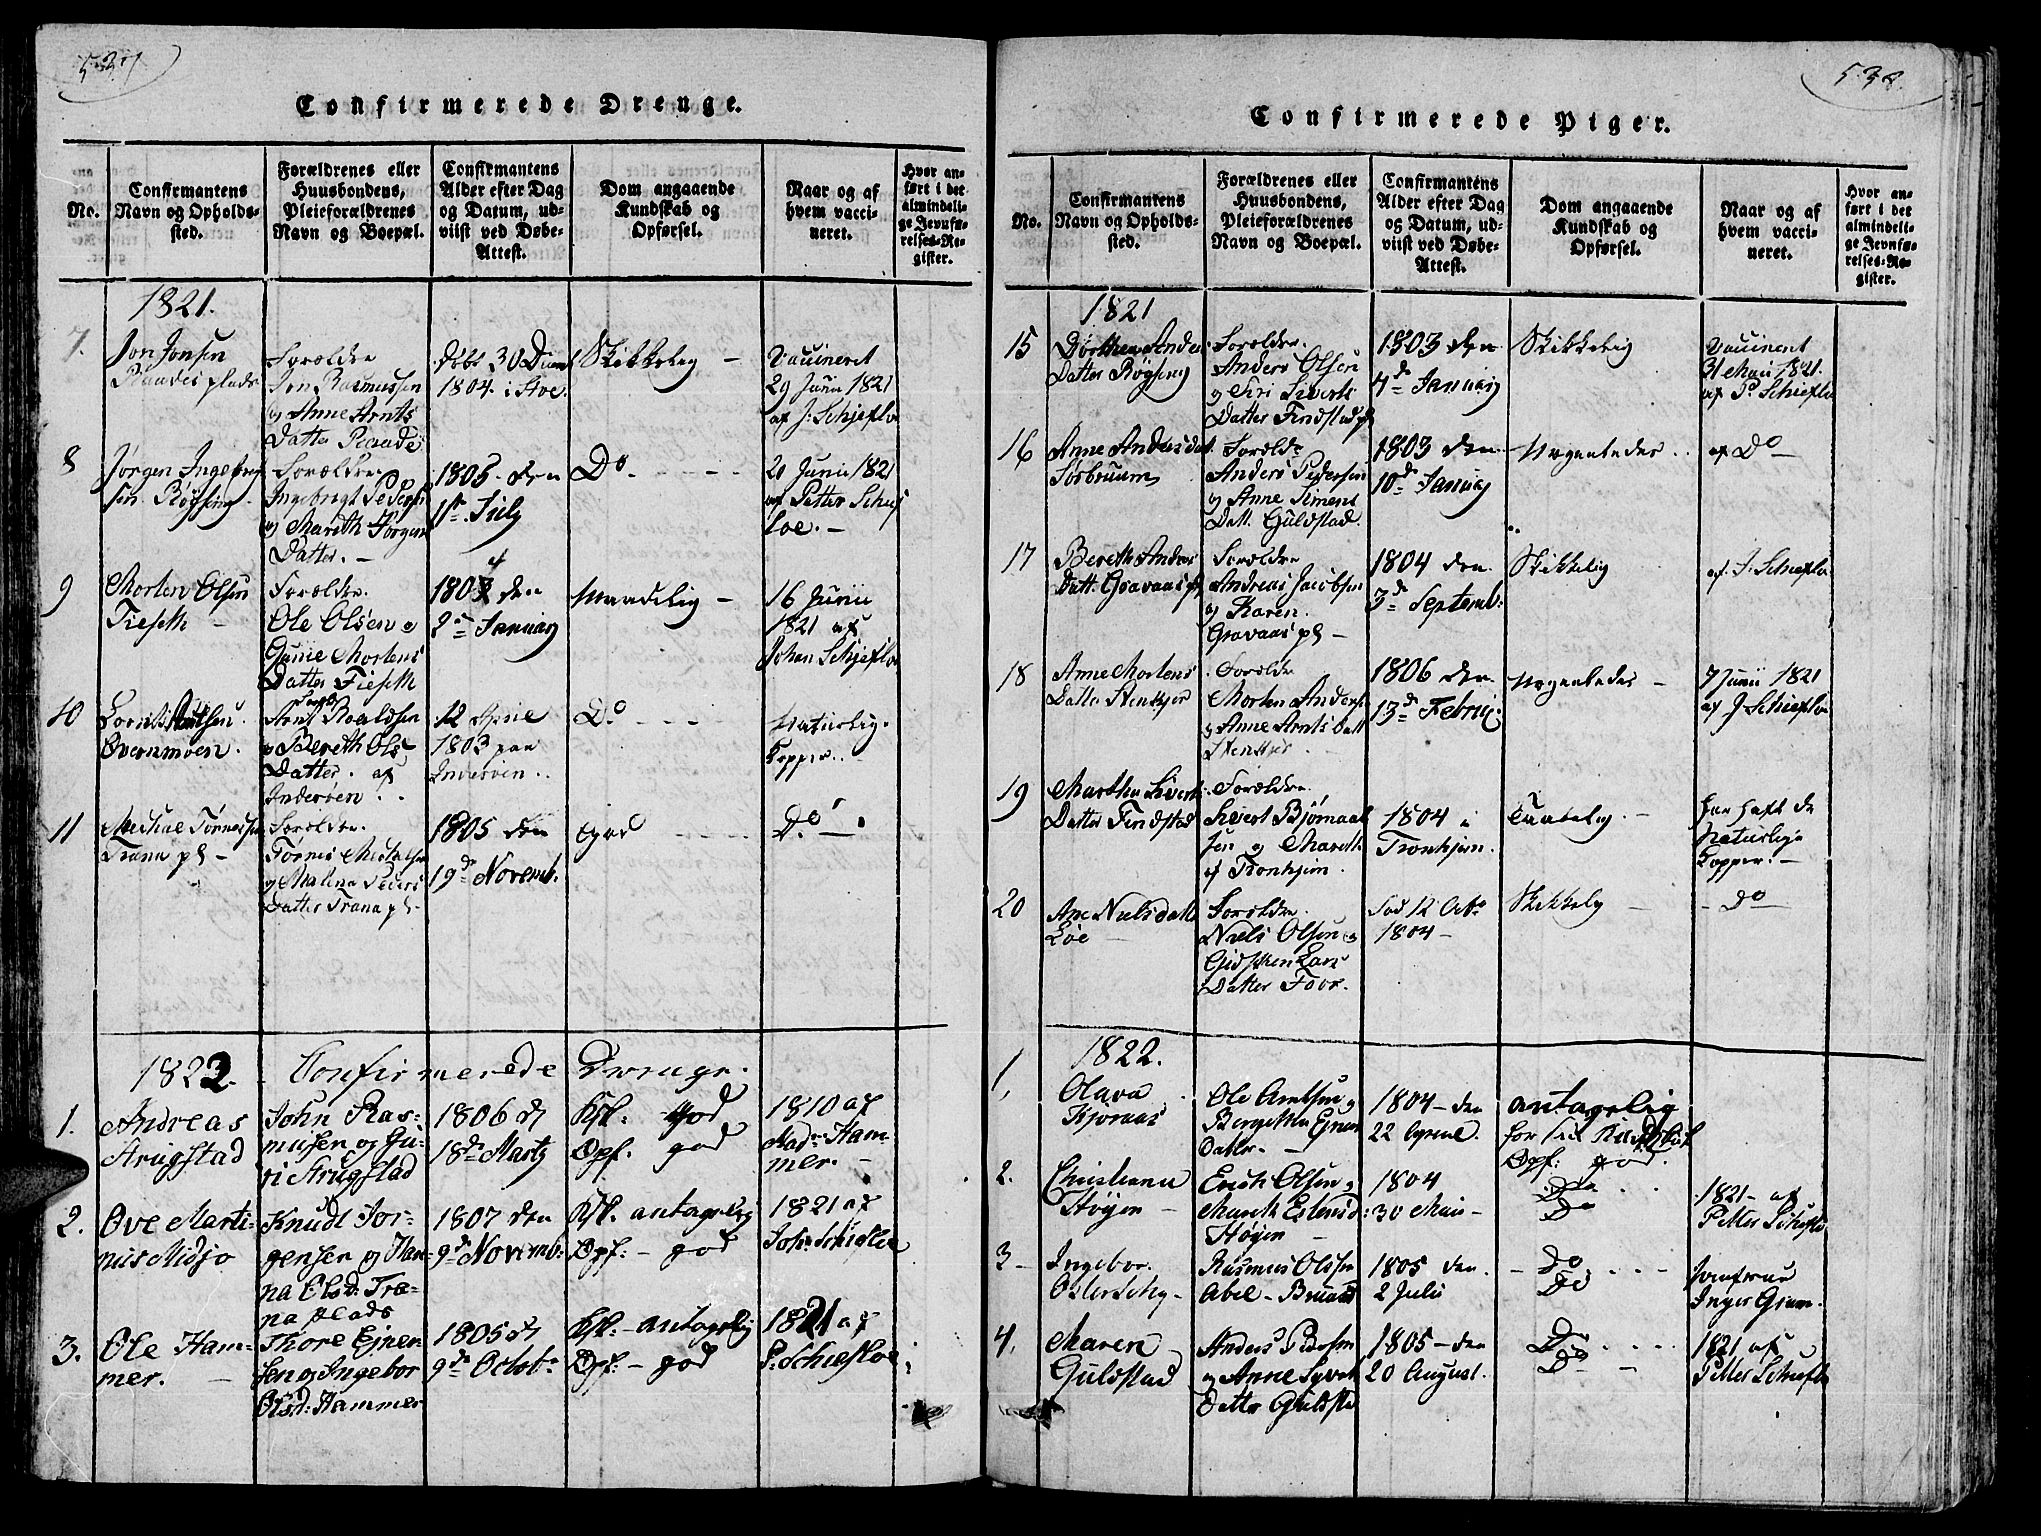 537
Confirmerede Drenge.
No.
Confirmantens
Navn og Opholds-
sted.
Forældrenes eller
Huusbondens,
Pleieforældrenes
Navn og Boepæl.
Confirmantens
Alder efter Dag
og Datum, ud-
viist ved Døbe-
Attest.
Dom angaaende
Kundskab og
Opførsel.
Naar og af
hvem vacci-
neret.
Hvor an-
ført i det
almindeli-
ge Jevnfø-
relses-Re-
gister.
1821.
7.
Jon Jonsen
Raadesplads
Forældre
Jon Rasmussen
og Anne Arnts
Datter Raade
Døbt 30
1804. i
Skikkelig —
Vaccineret
29 Junii 1821
af J. Schjeflo
8
Jørgen Ingebrig
sen Røysing
Forældre
Ingebrigt Peders
og Mareth Jørgen
Datter. —
1805. den
1ste July
Do. - - - -
21 Junii 1821
af Petter Schief
loe. —
9
Morten Olsen
Tieseth —
Forældre.
Ole Olsen og
Gunie Mortens
Datter Tieseth
1804 den
2den January
Maadelig —
16 Junii
1821 af
Johan Schjeflo
10
Øvernmoen.
Arnt Roaldsen
og Bereth Ols
Datter. af
Inderøen.
12 Aprie
1803 paa
Inderøen..
Do. - - -
Naturlig.
Kopper..
11
Michael Tørnessen
Trana pl —
Forældre.
Tørnes Michalsen
og Malena Peders
Datter Trana pl —
1805 den
19de Novemb.
god - - - -
Do. —
1822. Confirmerede Drenge.
1.
Andreas
Strugstad
John Ras-
musen og Gu-
ri Strugstad
1806 d
18de Martz
Ksk. god
Opf. god
1810 af
Mad. Ham-
mer. —
2.
Ove Marti-
nus Midjo
Knudt Jør-
gensen og Han-
na Olsd: Tra-
na plads
1807 den
9de Novemb:
Ksk. antagelig
Opf: — god
1821 af
Joh: Schieflo
3.
Ole Ham-
mer. —
Thore Ejnen
sen og Ingebor
Olsd: Hammer
1805 d
9de Octobr
Ksk. — antagelig
Opf. — god
1821 af
P: Schiefloe
538.
Confirmerede Piger.
No.
Confirmantens
Navn og Opholds-
sted.
Forældrenes eller
Huusbondens,
Pleieforældrenes
Navn og Boepæl.
Confirmantens
Alder efter Dag
og Datum, ud-
viist ved Døbe-
Attest.
Dom angaaende
Kundskab og
Opførsel.
Naar og af
hvem vacci-
neret.
Hvor an-
ført i det
almindeli-
ge Jevnfø-
relses-Re-
gister.
1821
15
Dørthea Anders
Datter Røysing
Forældre.
Anders Olsen
og Siri Siverts
Datter Findstad pl
1803 den
4de January
Skikkelig
Vaccineret
31 Mai 1821.
af P. Schieflo
16
Anne Andersdat
Forældr
Anders Pedersen
og Anne Simens
Datt. Guldstad.
1803 den
10de January
af Do —
17
Bereth Andrias
Datt. Gravaas pl
Forældre
Andreas Jacobsen
og Karen.
Gravaas pl —
1804 den
3de Septemb:
Skikkelig
af J. Schieflo
18
Anne Mortens
Datter Stenkjer
Forældre
Morten Anders
og Anne Arnts Datt
1806 den
13de Februi
7 Junii 1821
af J Schieflo
19
Martha Siverts
Datter Findstad
Forældre.
Sivert Bjørnaas
sen og Mareth
af Tronhjem.
1804 i
Tronhjem.
Taalelig. —
har haft de
Naturlige
Kopper. —
20
Ane Nielsdatt
Løe —
Forældre.
Niels Olsen og
Gidsken Lars
Datter Foor.
Fød 12 Octo
1804 —
Skikkelig —
- do
1822.
1,
Olava
Kjøraas
Ole Arntsen og
Bergetha Ejners
Datter. —
1804 — den
22 Aprill.
antagelig
for sin Kundskab
Opf: god.
2.
Christianna
Høyem —
Erich Olsen og
Mareth Estensd:
Høyem —
1804
30 Mai —
Do - - -
Do
1821 — af
Petter Schieflo
3 —
Ingebor.
Østerselg —
Rasmus Olsen
Abel — Bruaas
1805 den.
2 Julii
- Do. - - - -
Do
Jomfrue
Inger Gram.
4,
Maren
Guldstad
Anders Pedersen
og Anne Syvert
Datter Guldsta
1805 — den
20 August.
Do. - - - -
Do - -
1821 af
Petter Schieflo